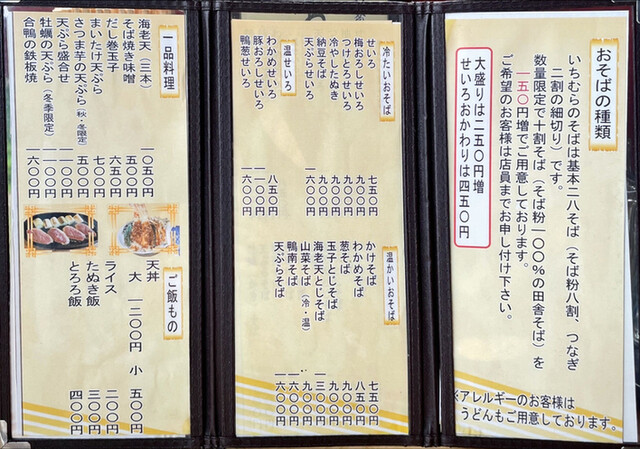 おそばの種類
いちむらのそばは基本二八そば（そば粉八割、つなぎ
二割の細切り）です。
数量限定で十割そば（そば粉一〇〇%の田舎そば）を
一五〇円増でご用意しております。
ご希望のお客様は店員までお申し付け下さい。
大盛りは二五〇円増
せいろおかわりは四五〇円
※アレルギーのお客様は
うどんもご用意しております。
冷たいおそば
せいろ 七五〇円
梅おろしせいろ 九〇〇円
つけとろせいろ 九〇〇円
冷やしたぬき 九〇〇円
納豆そば 九〇〇円
天ぷらせいろ 一六〇〇円
温せいろ
わかめせいろ 八五〇円
豚おろしせいろ 一一〇〇円
鴨葱せいろ 一六〇〇円
温かいおそば
かけそば 七五〇円
わかめそば 八五〇円
葱そば 九〇〇円
玉子とじそば 九〇〇円
海老天とじそば 一三〇〇円
山菜そば（冷・温） 九〇〇円
鴨南そば 一六〇〇円
天ぷらそば 一六〇〇円
一品料理
海老天（三本） 一〇五〇円
そば焼き味噌 五〇〇円
だし巻玉子 六五〇円
まいたけ天ぷら 七〇〇円
さつま芋の天ぷら（秋・冬限定） 五〇〇円
天ぷら盛合せ 一一〇〇円
牡蠣の天ぷら（冬季限定） 一一〇〇円
合鴨の鉄板焼 一六〇〇円
ご飯もの
天丼
大 一二〇〇円 小 五〇〇円
ライス 二〇〇円
たぬき飯 三〇〇円
とろろ飯 四〇〇円